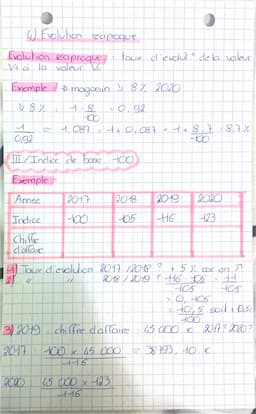 4) Evolution réciproque
Evolution réciproque : taux d'évolu° de la valeur
V1 à la valeur V0
Exemple : magasin ↘ 8% 2020
↘ 8% 1 - 8/100 = 0,92
1/0,92 = 1,087 = 1 + 0,087 = 1 + 8,7/100 8,7%
III/ Indice de base 100
Exemple :
Année 2017 2018 2019 2020
Indice 100 105 116 123
Chiffre
d'affaire
1) Taux d'évolution 2017/2018 ? + 5% car on
2) " " 2018/2019 ? 116 - 105 / 105 = 11/105
= 0,105
= 10,5/100 soit + 10,5
3) 2019 chiffre d'affaire 45 000 € 2017? 2020?
2017 100 x 45 000 / 116 = 38793,10 €
2020 45 000 x 123 / 116